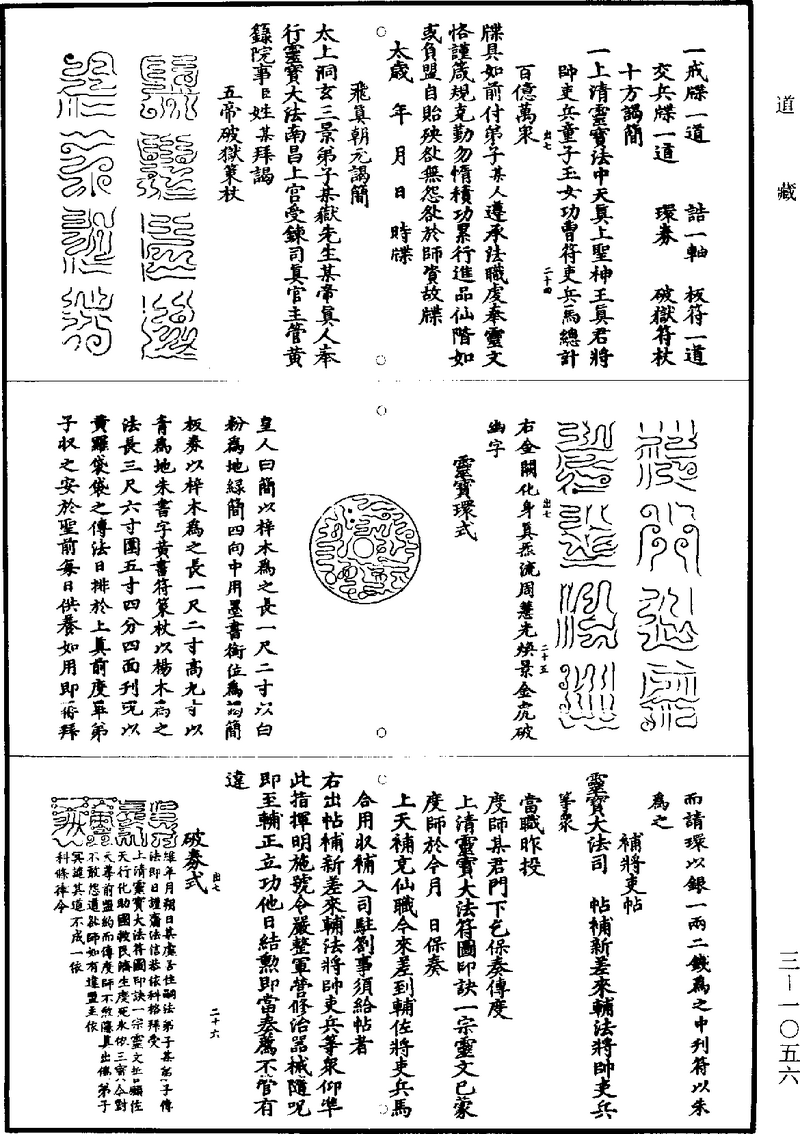 道藏
一戒牒一道　誥一軸　板符一道
交兵牒一道　環券　破獄符杖
十方謁簡
一上清靈寶法中天真上聖神王真君將
帥吏兵童子玉女功曹符吏兵馬總計
百億萬衆
出七
二十四
牒具如前付弟子某人遵承法職虔奉靈文
恪謹箴規克勤勿惰積功累行進品仙階如
或負盟自貽殃咎無怨咎於師資故牒
太歲　年　月　日　時牒
飛章朝元謁簡
太上洞玄三景弟子某嶽先生某帝真人奉
行靈寶大法南昌上宮受鍊司真官主管黃
籙院事臣姓某拜謁
五帝破獄策杖
右金闕化身真炁流周慧光煥景金虎破
幽字
出七
二十五
靈寶環式
皇人曰簡以梓木為之長一尺二寸以白
粉為地緑簡四向中用墨書銜位為謁簡
板券以梓木為之長一尺二寸高九寸以
青為地朱書字黃書符策杖以楊木為之
法長三尺六寸圍五寸四分四面刋咒以
黃羅袋袋之傳法日排於上真前度畢弟
子収之安於聖前每日供養如用即焚拜
而請環以銀一兩二錢為之中刋符以朱
為之
補將吏帖
靈寶大法司　帖補新差來輔法將帥吏兵
等衆
當職昨投
度師某君門下乞保奏傳度
上清靈寶大法符圖印訣一宗靈文已蒙
度師於今月　日保奏
上天補充仙職今來差到輔佐將吏兵馬
合用収補入司駐劄事須給帖者
右出帖補新差來輔法將帥吏兵等衆仰準
此指揮明施號令嚴整軍營修治器械隨呪
即至輔正立功他日結勲即當奏薦不管有
違
破券式
出七
二十六
維年月朔日某處居住嗣法弟子某
法即日謹齎法信恭依科格拜受
上清靈寶大法符圖印訣一宗靈文
天行化助國救民濟生度死永依
天尊前盟約而傳度師不敢隱真出僞弟子
不敢怨道咎師如有違盟並依
冥違其道不成一依
科條律令
三—一〇五六